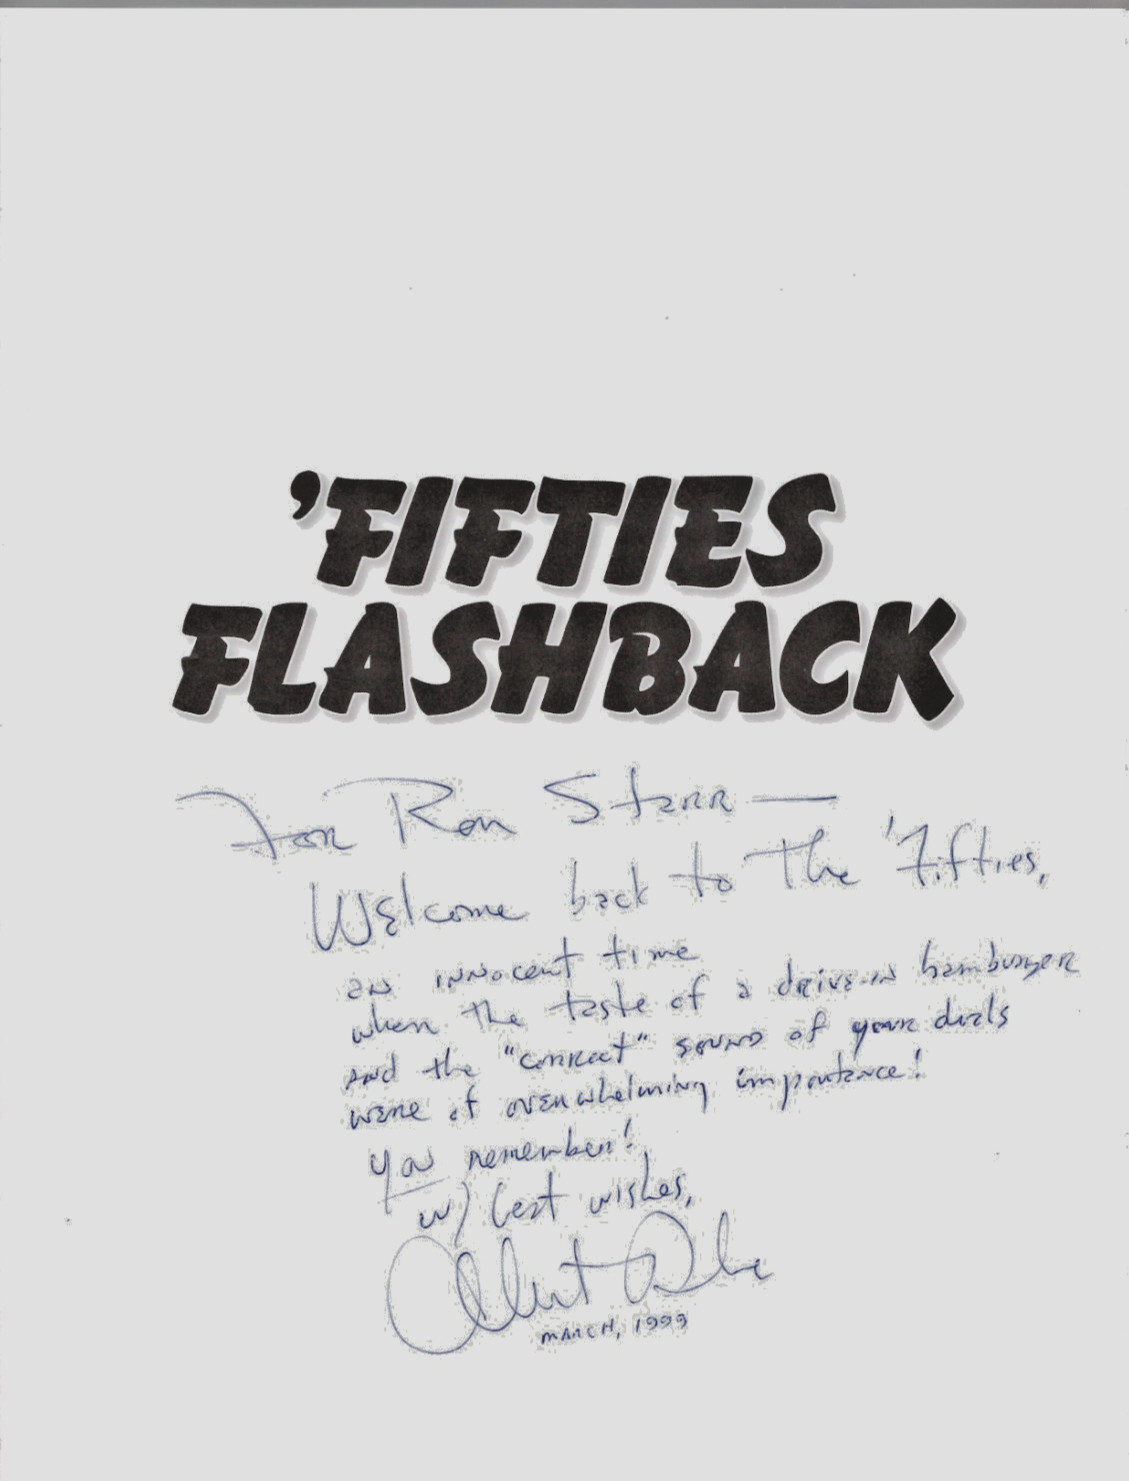 'FIFTIES
FLASHBACK
For Ron Starr —
Welcome back to the 'Fifties,
an innocent time
when the taste of a drive-in hamburger
and the "correct" sound of your duals
were of overwhelming importance!
You remember!
w/ best wishes,
Albert Drake
MARCH, 1999